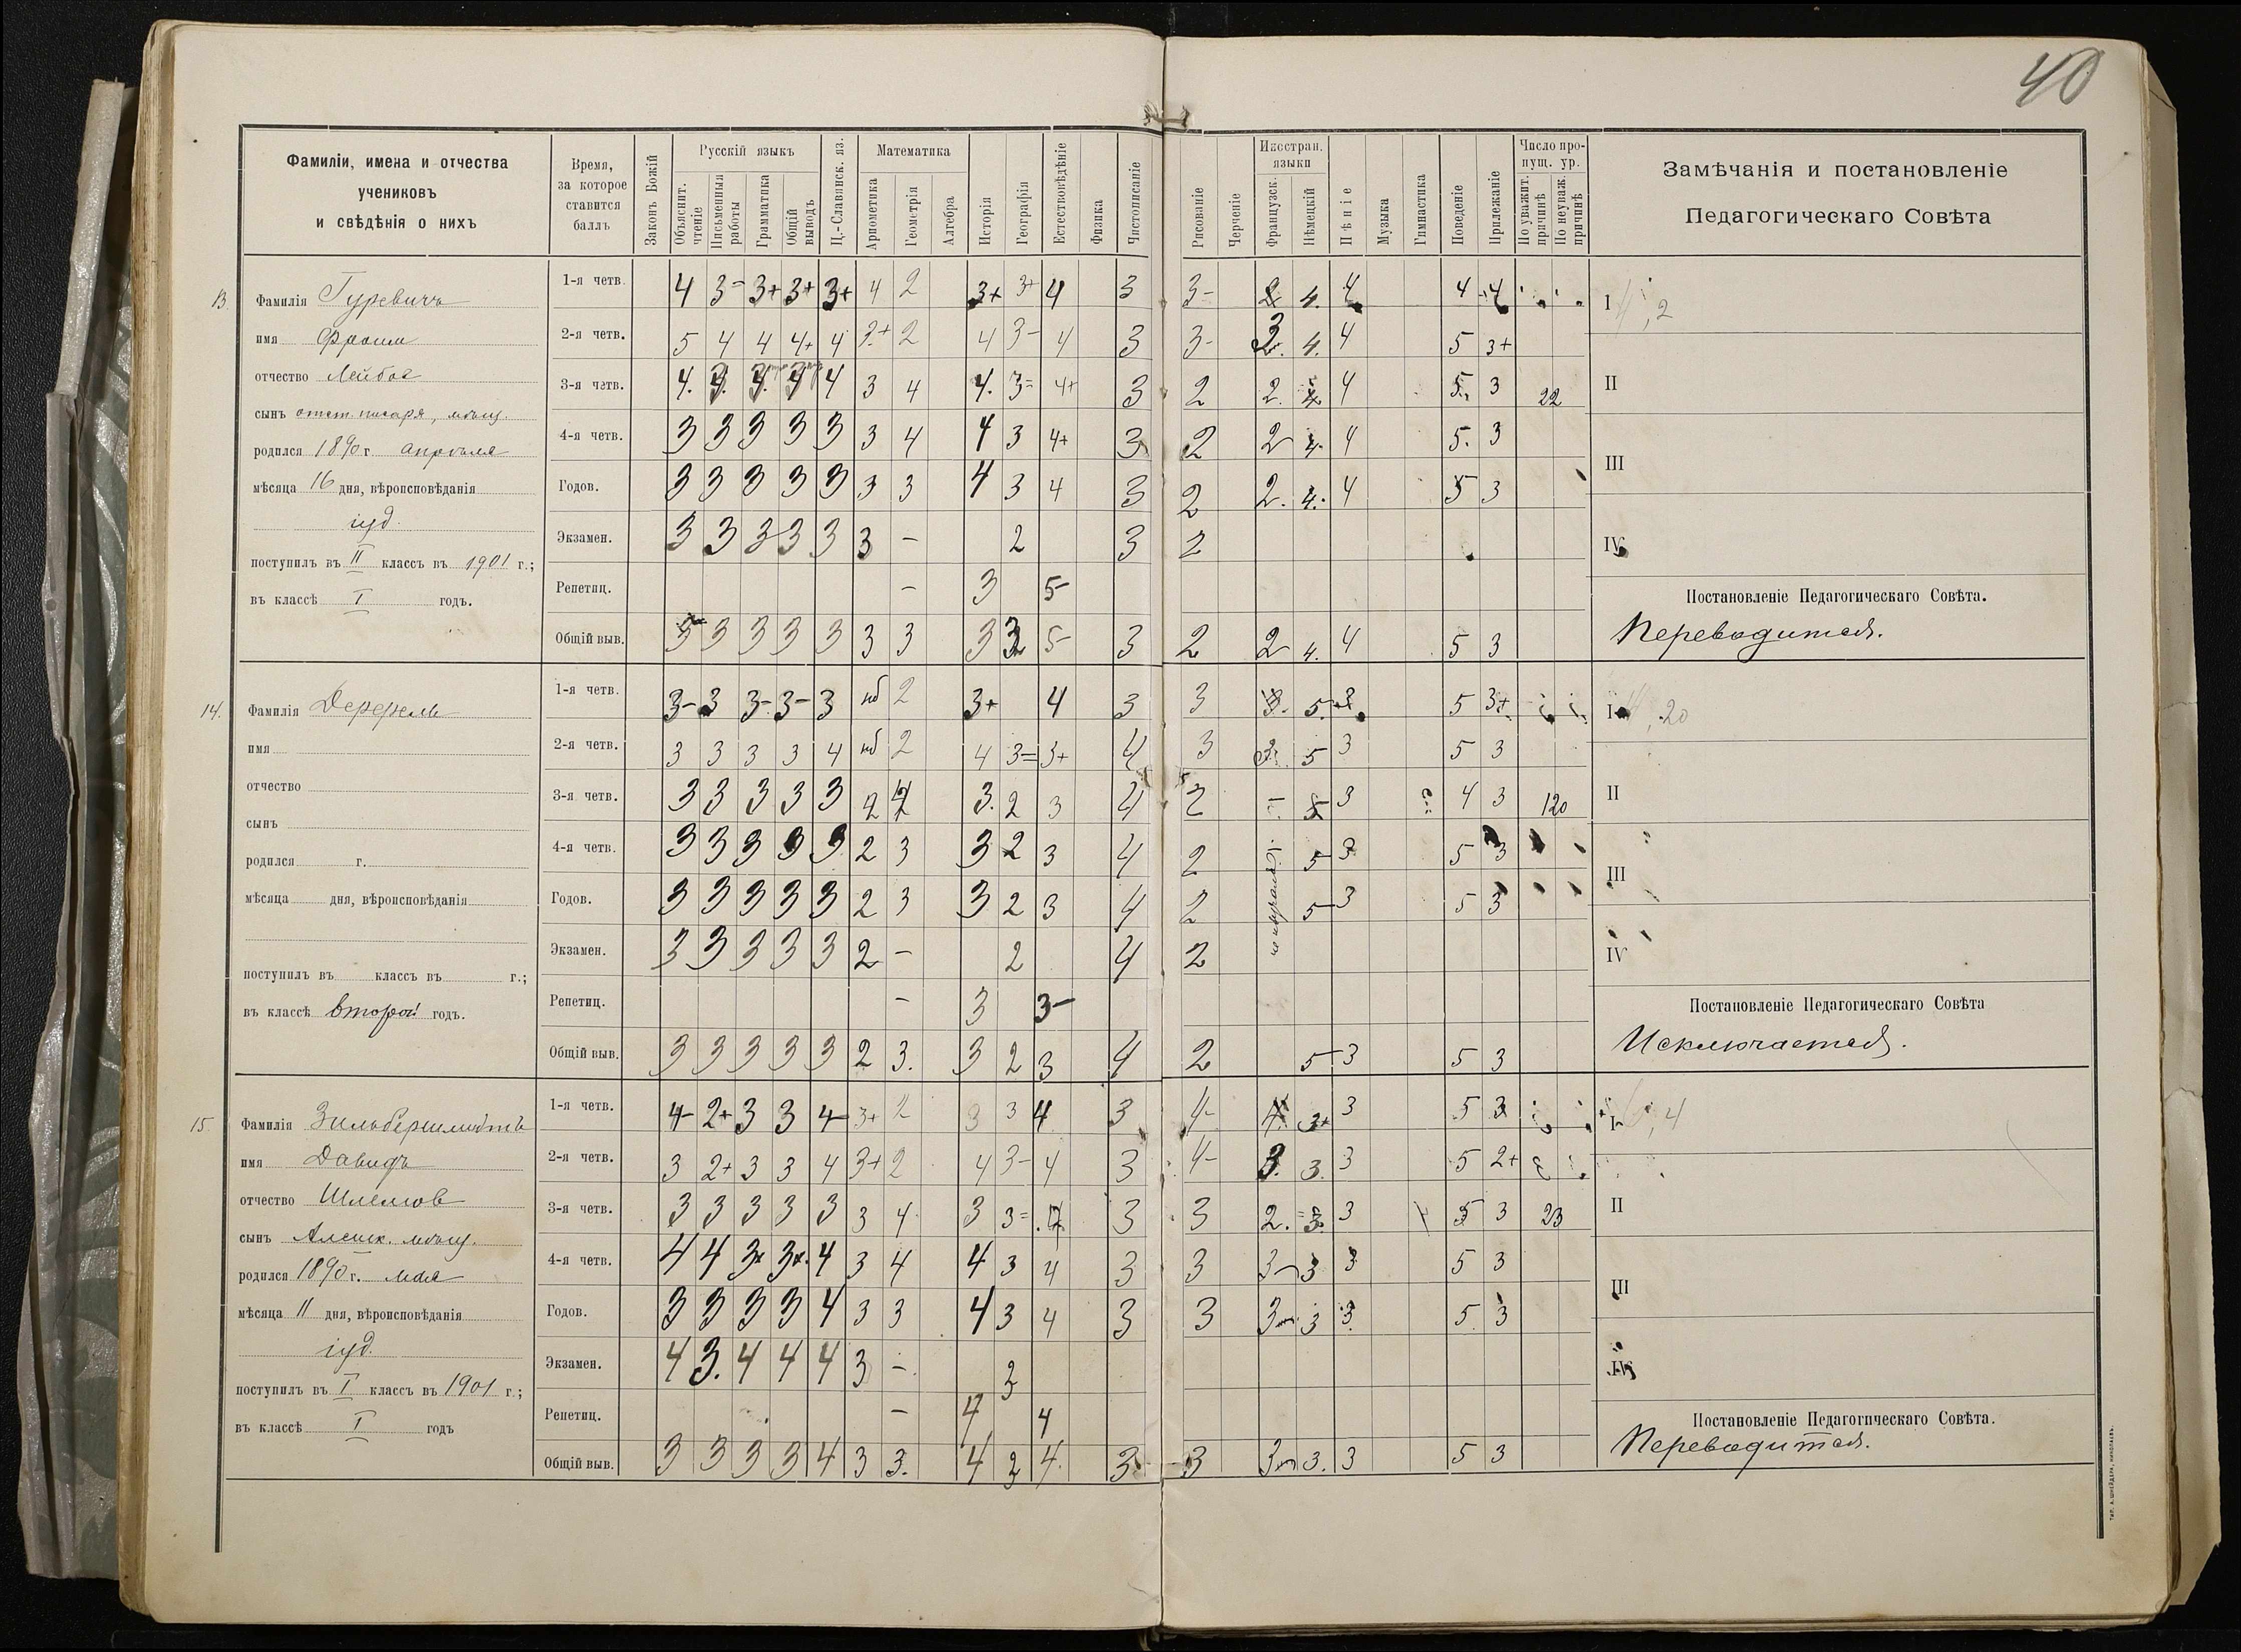 40
Фамиліи, имена и отчества
учениковъ
и свѣдѣнія о нихъ
Время,
за которое
ставится
баллъ
Законъ Божій
Русскій языкъ
Объяснит. чтеніе
Письменныя работы
Грамматика
Общій выводъ
Ц.-Славянск. яз.
Математика
Ариѳметика
Геометрія
Алгебра
Исторія
Географія
Естествовѣдѣніе
Физика
Чистописаніе
Рисованіе
Черченіе
Иностран.
языки
Французск.
Нѣмецкій
Пѣніе
Музыка
Гимнастика
Поведеніе
Прилежаніе
Число про-
пущ. ур.
По уважит. причинѣ
По неуваж. причинѣ
Замѣчанія и постановленіе
Педагогическаго Совѣта
13.
Фамилія Гуревичъ
имя Фроим
отчество Лейбов
сынъ отст. писаря, мѣщ.
родился 1890 г. апрѣля
мѣсяца 16 дня, вѣроисповѣданія
іуд.
поступилъ въ II классъ въ 1901 г.;
въ классѣ I годъ.
1-я четв. 4 3= 3+ 3+ 3+ 4 2 3+ 3+ 4 3 3- 4. 4 4
2-я четв. 5 4 4 4+ 4 3+ 2 4 3- 4 3 3- 4. 4 5 3+
3-я четв. 4 3 4 4. 3= 4+ 3 2 2. 4 5 3 22
4-я четв. 3 3 3 3 3 3 4 4 3 4+ 3 2 2 4. 4 5. 3
Годов. 3 3 3 3 3 3 3 4 3 4 3 2 2. 4. 4 5 3
Экзамен. 3 3 3 3 3 3 - 2 3 2
Репетиц. - 3 5-
Общій выв. 3 3 3 3 3 3 3 3 5- 3 2 2 4. 4 5 3
I
II
III
IV
Постановленіе Педагогическаго Совѣта.
Переводится.
14.
Фамилія Дерфель
имя
отчество
сынъ
родился г.
мѣсяца дня, вѣроисповѣданія
поступилъ въ классъ въ г.;
въ классѣ второй годъ.
1-я четв. 3- 3 3- 3- 3 нб 2 3+ 4 3 3 3. 5. 5 3+
2-я четв. 3 3 3 3 4 нб 2 4 3= 3+ 4 3 5 3 5 3
3-я четв. 3 3 3 3 3 2 3. 2 3 4 2 5 3 4 3 120
4-я четв. 3 3 3 3 3 2 3 3 2 3 4 2 5 3 5 3
Годов. 3 3 3 3 3 2 3 3 2 3 4 2 5 3 5 3
Экзамен. 3 3 3 3 3 2 - 2 4 2
Репетиц. - 3 3-
Общій выв. 3 3 3 3 3 2 3. 3 2 3 4 2 5 3 5 3
I
II
III
IV
Постановленіе Педагогическаго Совѣта
Исключается.
15.
Фамилія Зильбершмидтъ
имя Давидъ
отчество Шлемов
сынъ мѣщ.
родился 1890 г. мая
мѣсяца 11 дня, вѣроисповѣданія
іуд.
поступилъ въ I классъ въ 1901 г.;
въ классѣ I годъ
1-я четв. 4- 2+ 3 3 4- 3+ 2 3 3 4 3 4- 3+ 3 5 3
2-я четв. 3 2+ 3 3 4 3+ 2 4 3- 4 3 4- 3. 3. 3 5 2+
3-я четв. 3 3 3 3 3 3 4 3 3= 3 3 2. 3 5 3 23
4-я четв. 4 4 4 3 4 4 3 4 3 3 3 3 3 5 3
Годов. 3 3 3 3 4 3 3 4 3 4 3 3 3 3 3. 5 3
Экзамен. 4 3. 4 4 4 3 -
Репетиц. - 4 4
Общій выв. 3 3 3 3 4 3 3. 4 4. 3 3 3 3. 3 5 3
I
II
III
IV
Постановленіе Педагогическаго Совѣта.
Переводится.
ТИП. А. ШНЕЙДЕРА, НИКОЛАЕВЪ.